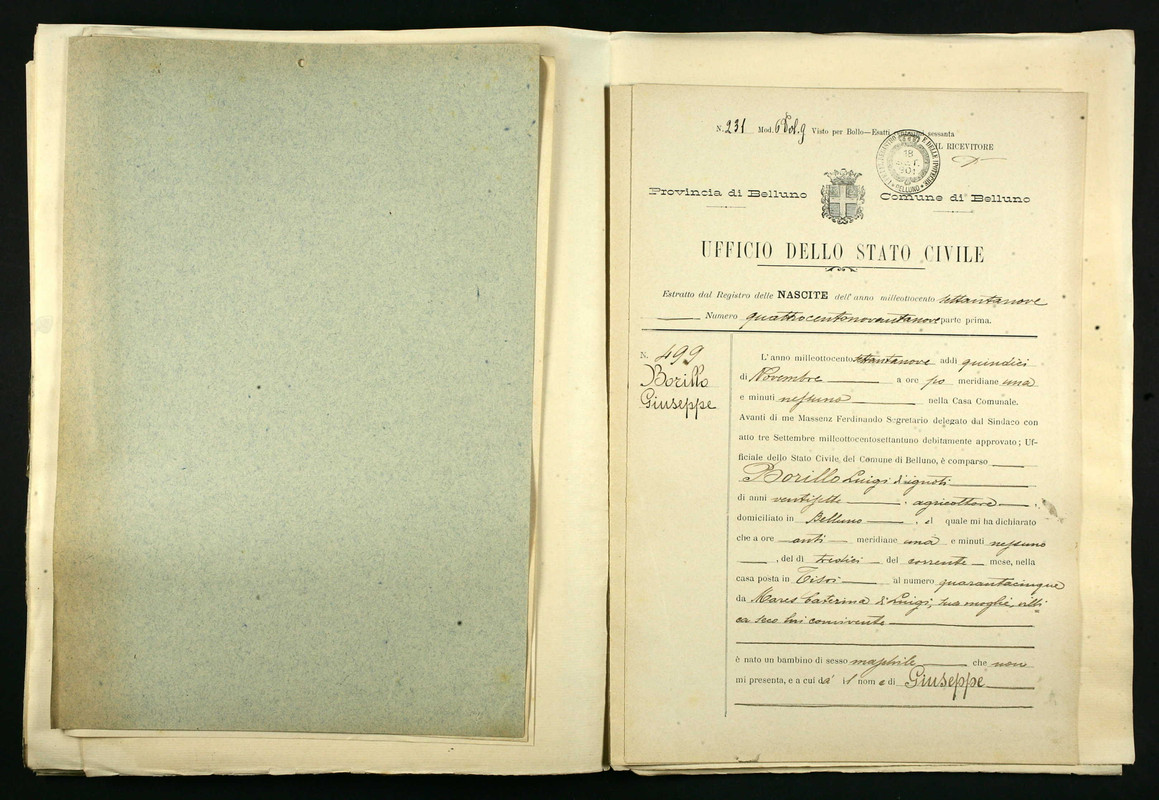 N. 231 Mod. 6 Vol. 9 Visto per Bollo—Esatti sessanta
IL RICEVITORE
18
901
BELLUNO
Provincia di Belluno Comune di Belluno
UFFICIO DELLO STATO CIVILE
Estratto dal Registro delle NASCITE dell'anno milleottocento settantanove
Numero quattrocentonovantanove parte prima.
N. 499
Borillo
Giuseppe
L'anno milleottocento settantanove addi quindici
di Novembre a ore po meridiane una
e minuti nessuno nella Casa Comunale.
Avanti di me Massenz Ferdinando Segretario delegato dal Sindaco con
atto tre Settembre milleottocentosettantuno debitamente approvato; Uf-
ficiale dello Stato Civile del Comune di Belluno, è comparso
Borillo Luigi d'ignoti
di anni ventisette agricoltore
domiciliato in Belluno, il quale mi ha dichiarato
che a ore anti meridiane una e minuti nessuno
, del dì tredici del corrente mese, nella
casa posta in Tisoi al numero quarantacinque
da Mares Caterina di Luigi, sua moglie, villi
ca seco lui convivente
è nato un bambino di sesso maschile che non
mi presenta, e a cui dà il nome di Giuseppe